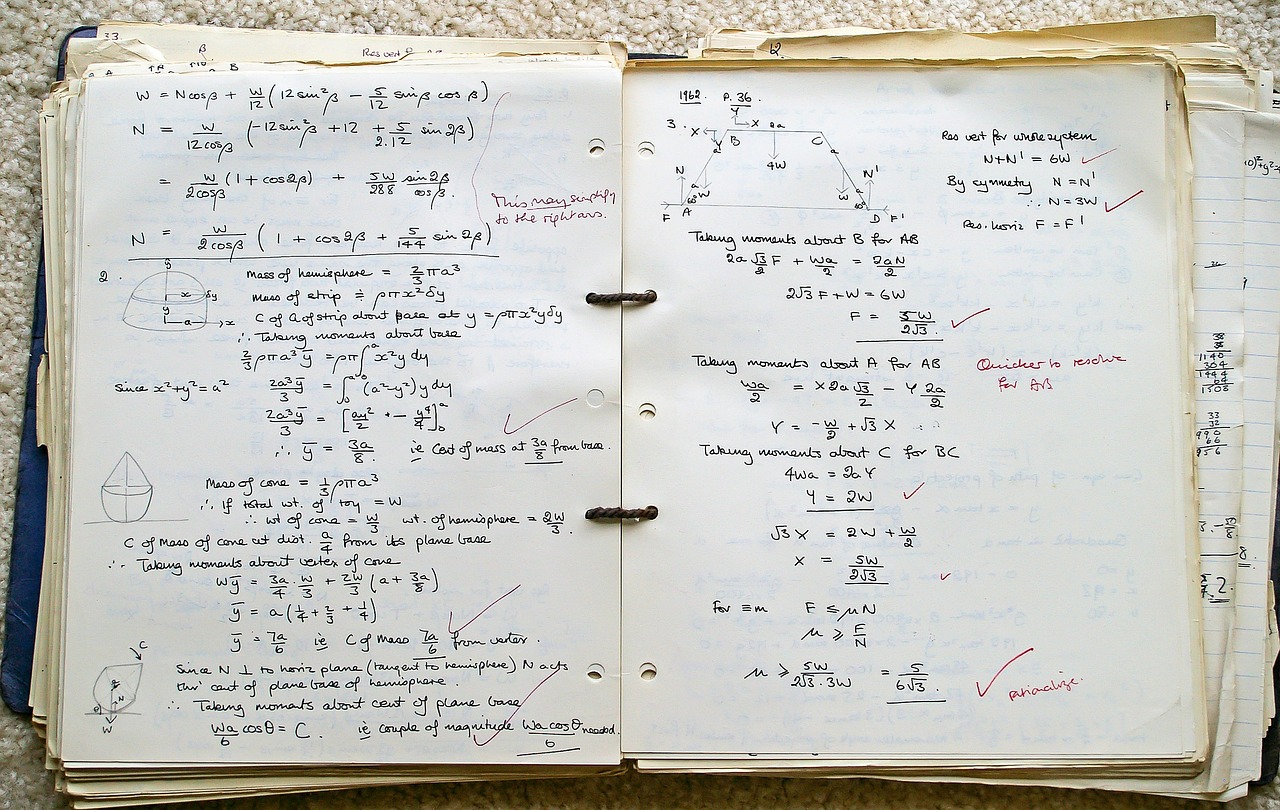 33.
β
Res vert
B
W = Ncosβ + W/12 (12sin²β − 5/12 sinβ cosβ)
N = W/12cosβ (−12sin²β + 12 + 5/2.12 sin2β)
= W/2cosβ (1 + cos2β) + 5W/288 sin2β/cosβ.
This may simplify
to the right ans.
N = W/2cosβ (1 + cos2β + 5/144 sin2β)
2.
y
x δy
y
a x
Mass of hemisphere = 2/3 πa³
Mass of strip ≑ ρπx²δy
C of G of strip about base at y = ρπx²yδy
∴ Taking moments about base
2/3 ρπa³ȳ = ρπ∫₀ᵃ x²y dy
Since x²+y²=a² 2a³ȳ/3 = ∫₀ᵃ (a²−y²)y dy
2a³ȳ/3 = [ay²/2 − y⁴/4]₀ᵃ
∴ ȳ = 3a/8 ie Cent of mass at 3a/8 from base.
Mass of cone = 1/3 ρπa³
∴ If total wt. of toy = W
∴ wt of cone = W/3 wt. of hemisphere = 2W/3.
C of Mass of cone at dist. a/4 from its plane base
∴ Taking moments about vertex of cone
Wȳ = 3a/4 . W/3 + 2W/3 (a + 3a/8)
ȳ = a(1/4 + 2/3 + 1/4)
ȳ = 7a/6 ie C of Mass 7a/6 from vertex.
C
θ
N
W
Since N ⊥ to horiz plane (tangent to hemisphere) N acts
thro' cent of plane base of hemisphere.
∴ Taking moments about cent of plane base
Wa/6 cosθ = C. ie couple of magnitude Wa cosθ/6 needed.
12.
1962. P. 36.
3.
Y
X
X
2a
B
C
Y
a
a
4W
N
a
W
60°
F
A
W
a
N'
60°
D
F'
Res vert for whole system
N+N' = 6W
By symmetry N = N'
∴ N = 3W
Res. horiz F = F'
Taking moments about B for AB
2a √3/2 F + Wa/2 = 2aN/2
2√3 F + W = 6W
F = 5W/2√3.
Taking moments about A for AB
Quicker to resolve
for AB
Wa/2 = X 2a √3/2 − Y 2a/2
Y = −W/2 + √3 X
Taking moments about C for BC
4Wa = 2aY
Y = 2W
√3 X = 2W + W/2
X = 5W/2√3
For ≡m F ≤ μN
μ ≥ F/N
μ ≥ 5W/2√3.3W = 5/6√3.
rationalize.
38
38
1140
304
1444
64
1508
33
32
990
66
956